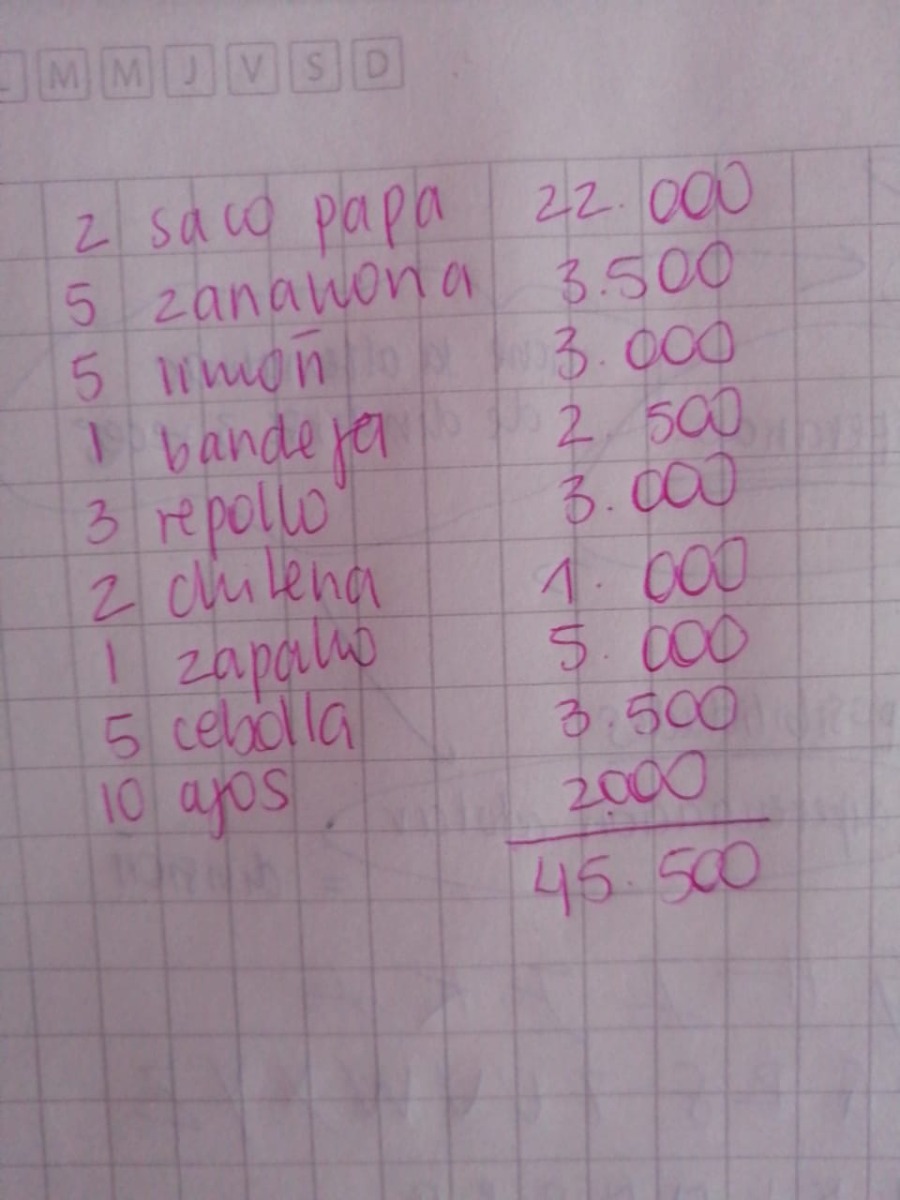 M M J V S D
2 saco papa 22.000
5 zanahoria 3.500
5 limon 3.000
1 bandeja 2.500
3 repollo 3.000
2 chilena 1.000
1 zapallo 5.000
5 cebolla 3.500
10 ajos 2000
45.500